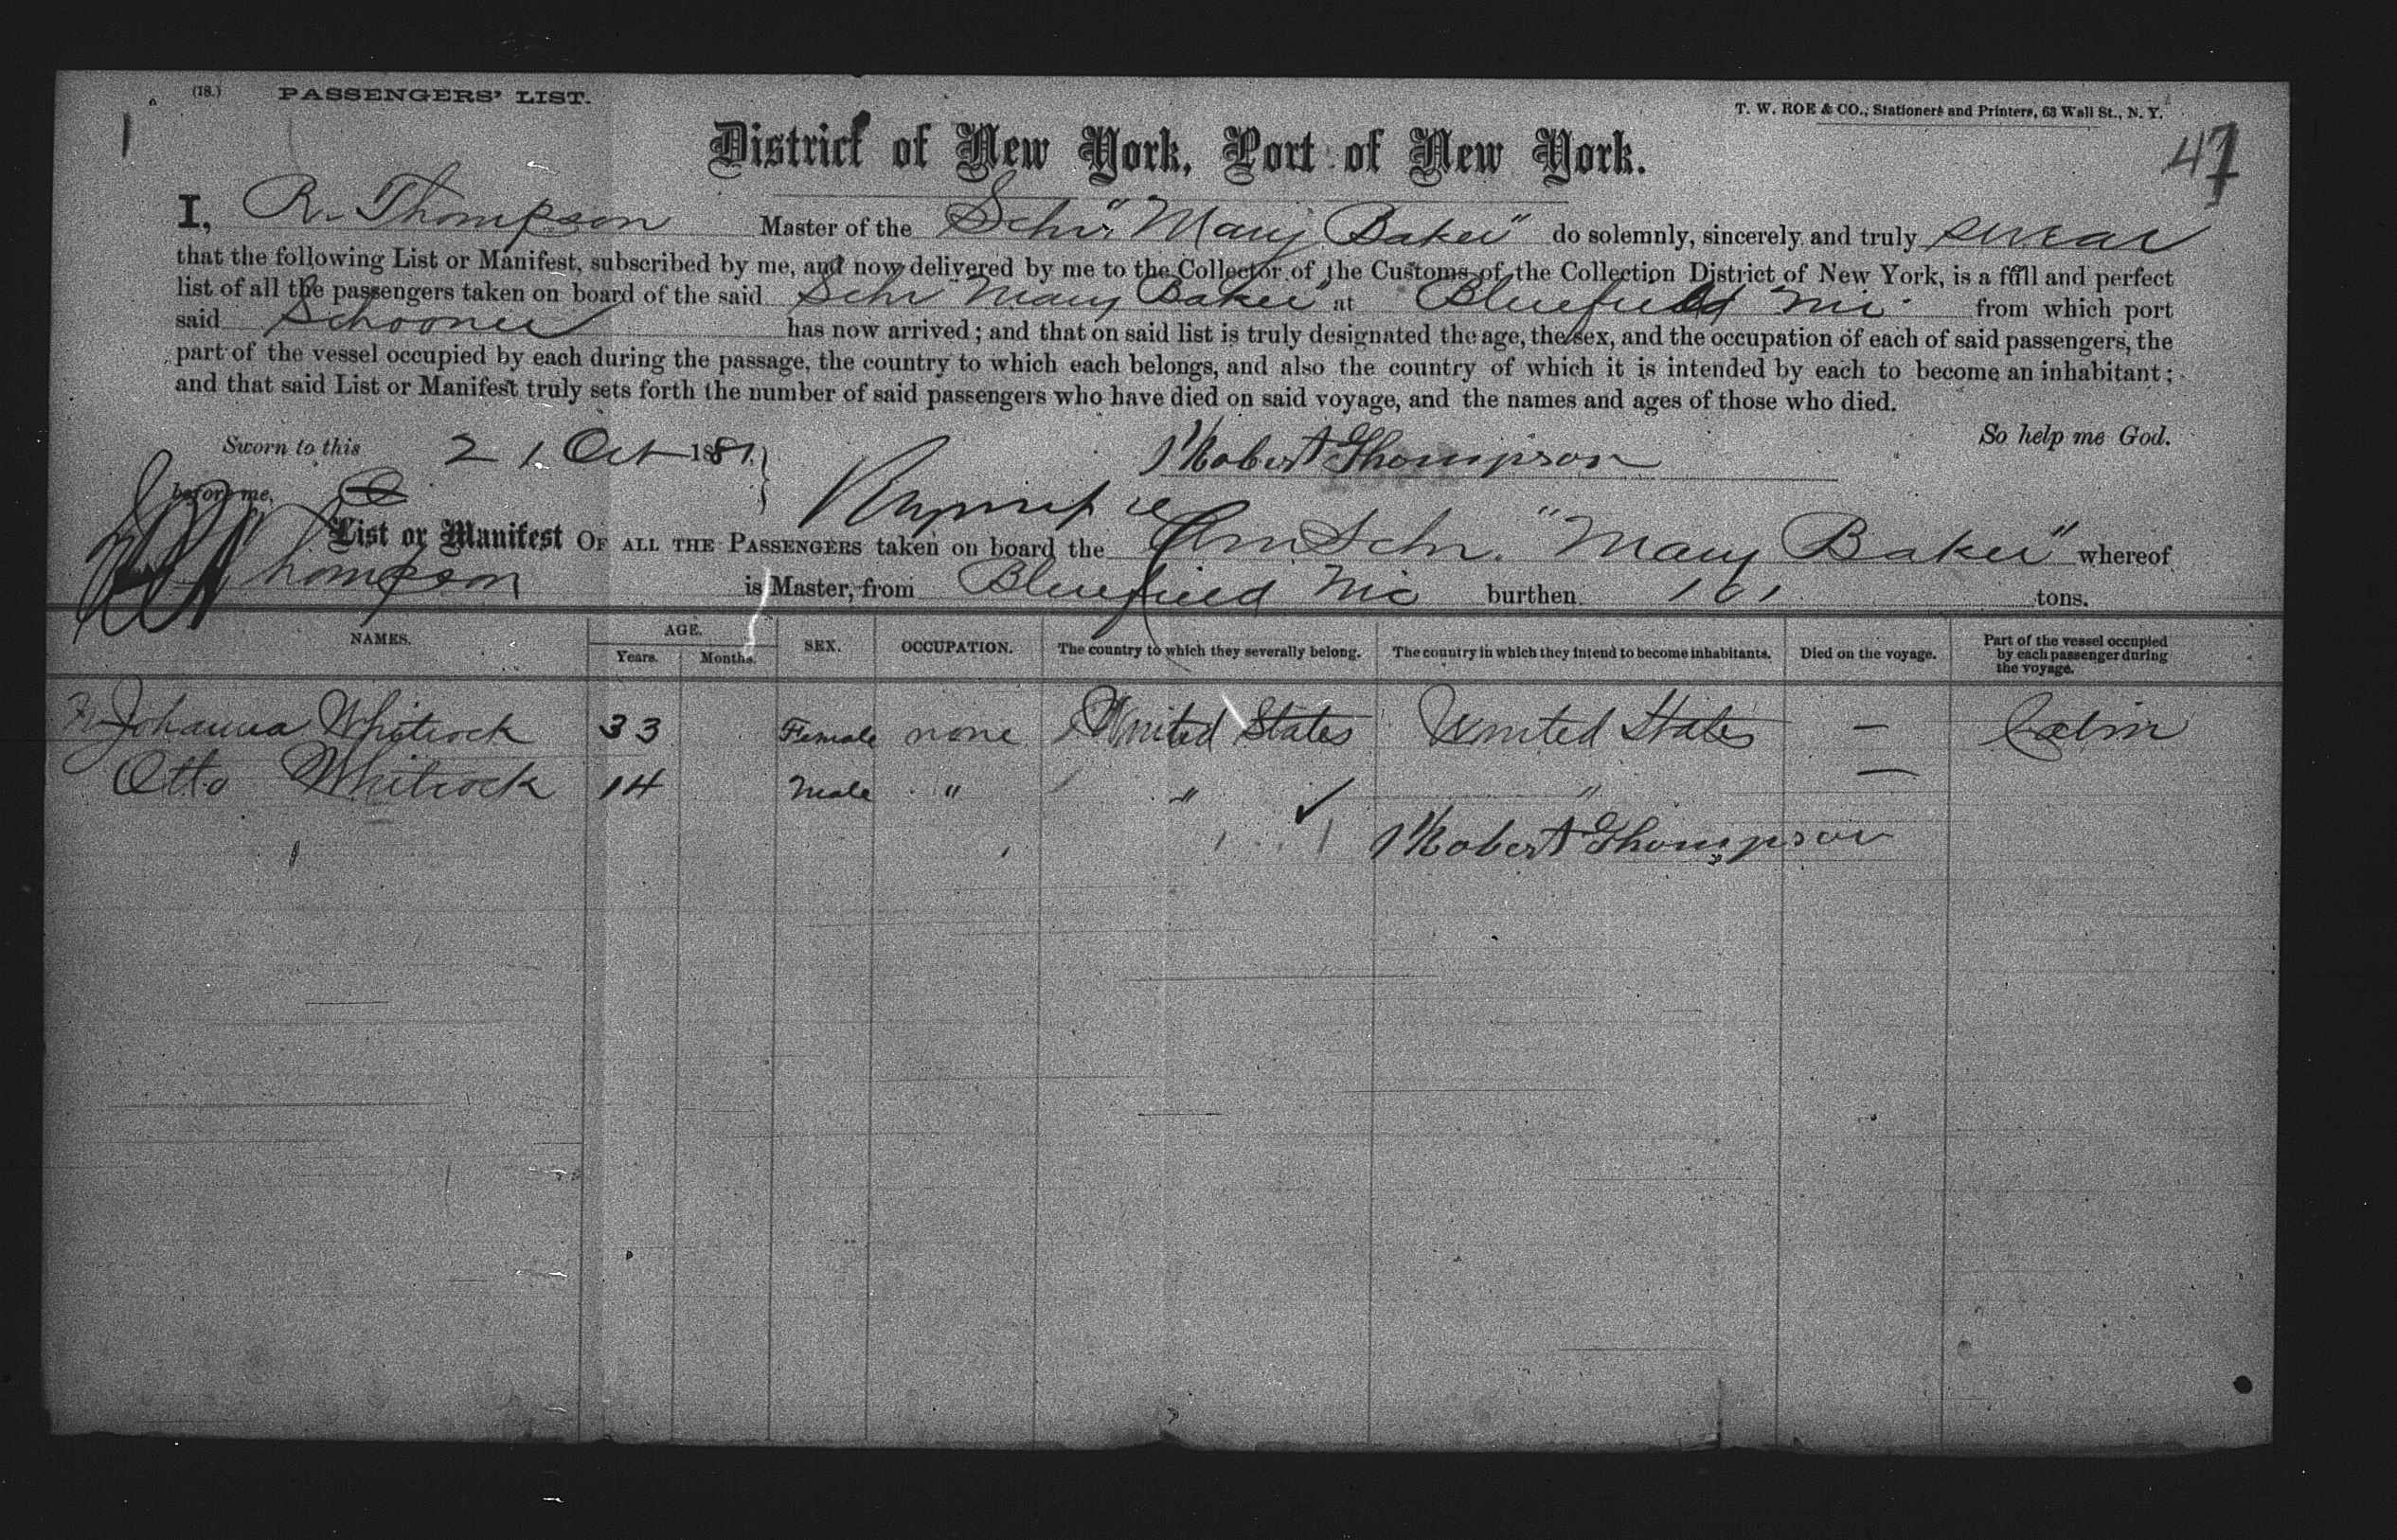 (18.) PASSENGERS' LIST.
T. W. ROE & CO., Stationers and Printers, 63 Wall St., N. Y.
47
District of New York, Port of New York.
I, R. Thompson Master of the Schr "Mary Baker" do solemnly, sincerely and truly swear
that the following List or Manifest, subscribed by me, and now delivered by me to the Collector of the Customs of the Collection District of New York, is a full and perfect
list of all the passengers taken on board of the said Schr "Mary Baker" at Bluefield Nic from which port
said Schooner has now arrived; and that on said list is truly designated the age, the sex, and the occupation of each of said passengers, the
part of the vessel occupied by each during the passage, the country to which each belongs, and also the country of which it is intended by each to become an inhabitant;
and that said List or Manifest truly sets forth the number of said passengers who have died on said voyage, and the names and ages of those who died.
So help me God.
Sworn to this 21. Oct 1881. Robert Thompson
before me,
List or Manifest OF ALL THE PASSENGERS taken on board the Am Schr. "Mary Baker" whereof
R Thompson is Master, from Bluefield Nic burthen 161 tons.
NAMES. AGE. Years. Months. SEX. OCCUPATION. The country to which they severally belong. The country in which they intend to become inhabitants. Died on the voyage. Part of the vessel occupied by each passenger during the voyage.
Johanna Whitrock 33 Female none United States United States — Cabin
Otto Whitrock 14 Male " " " —
Robert Thompson